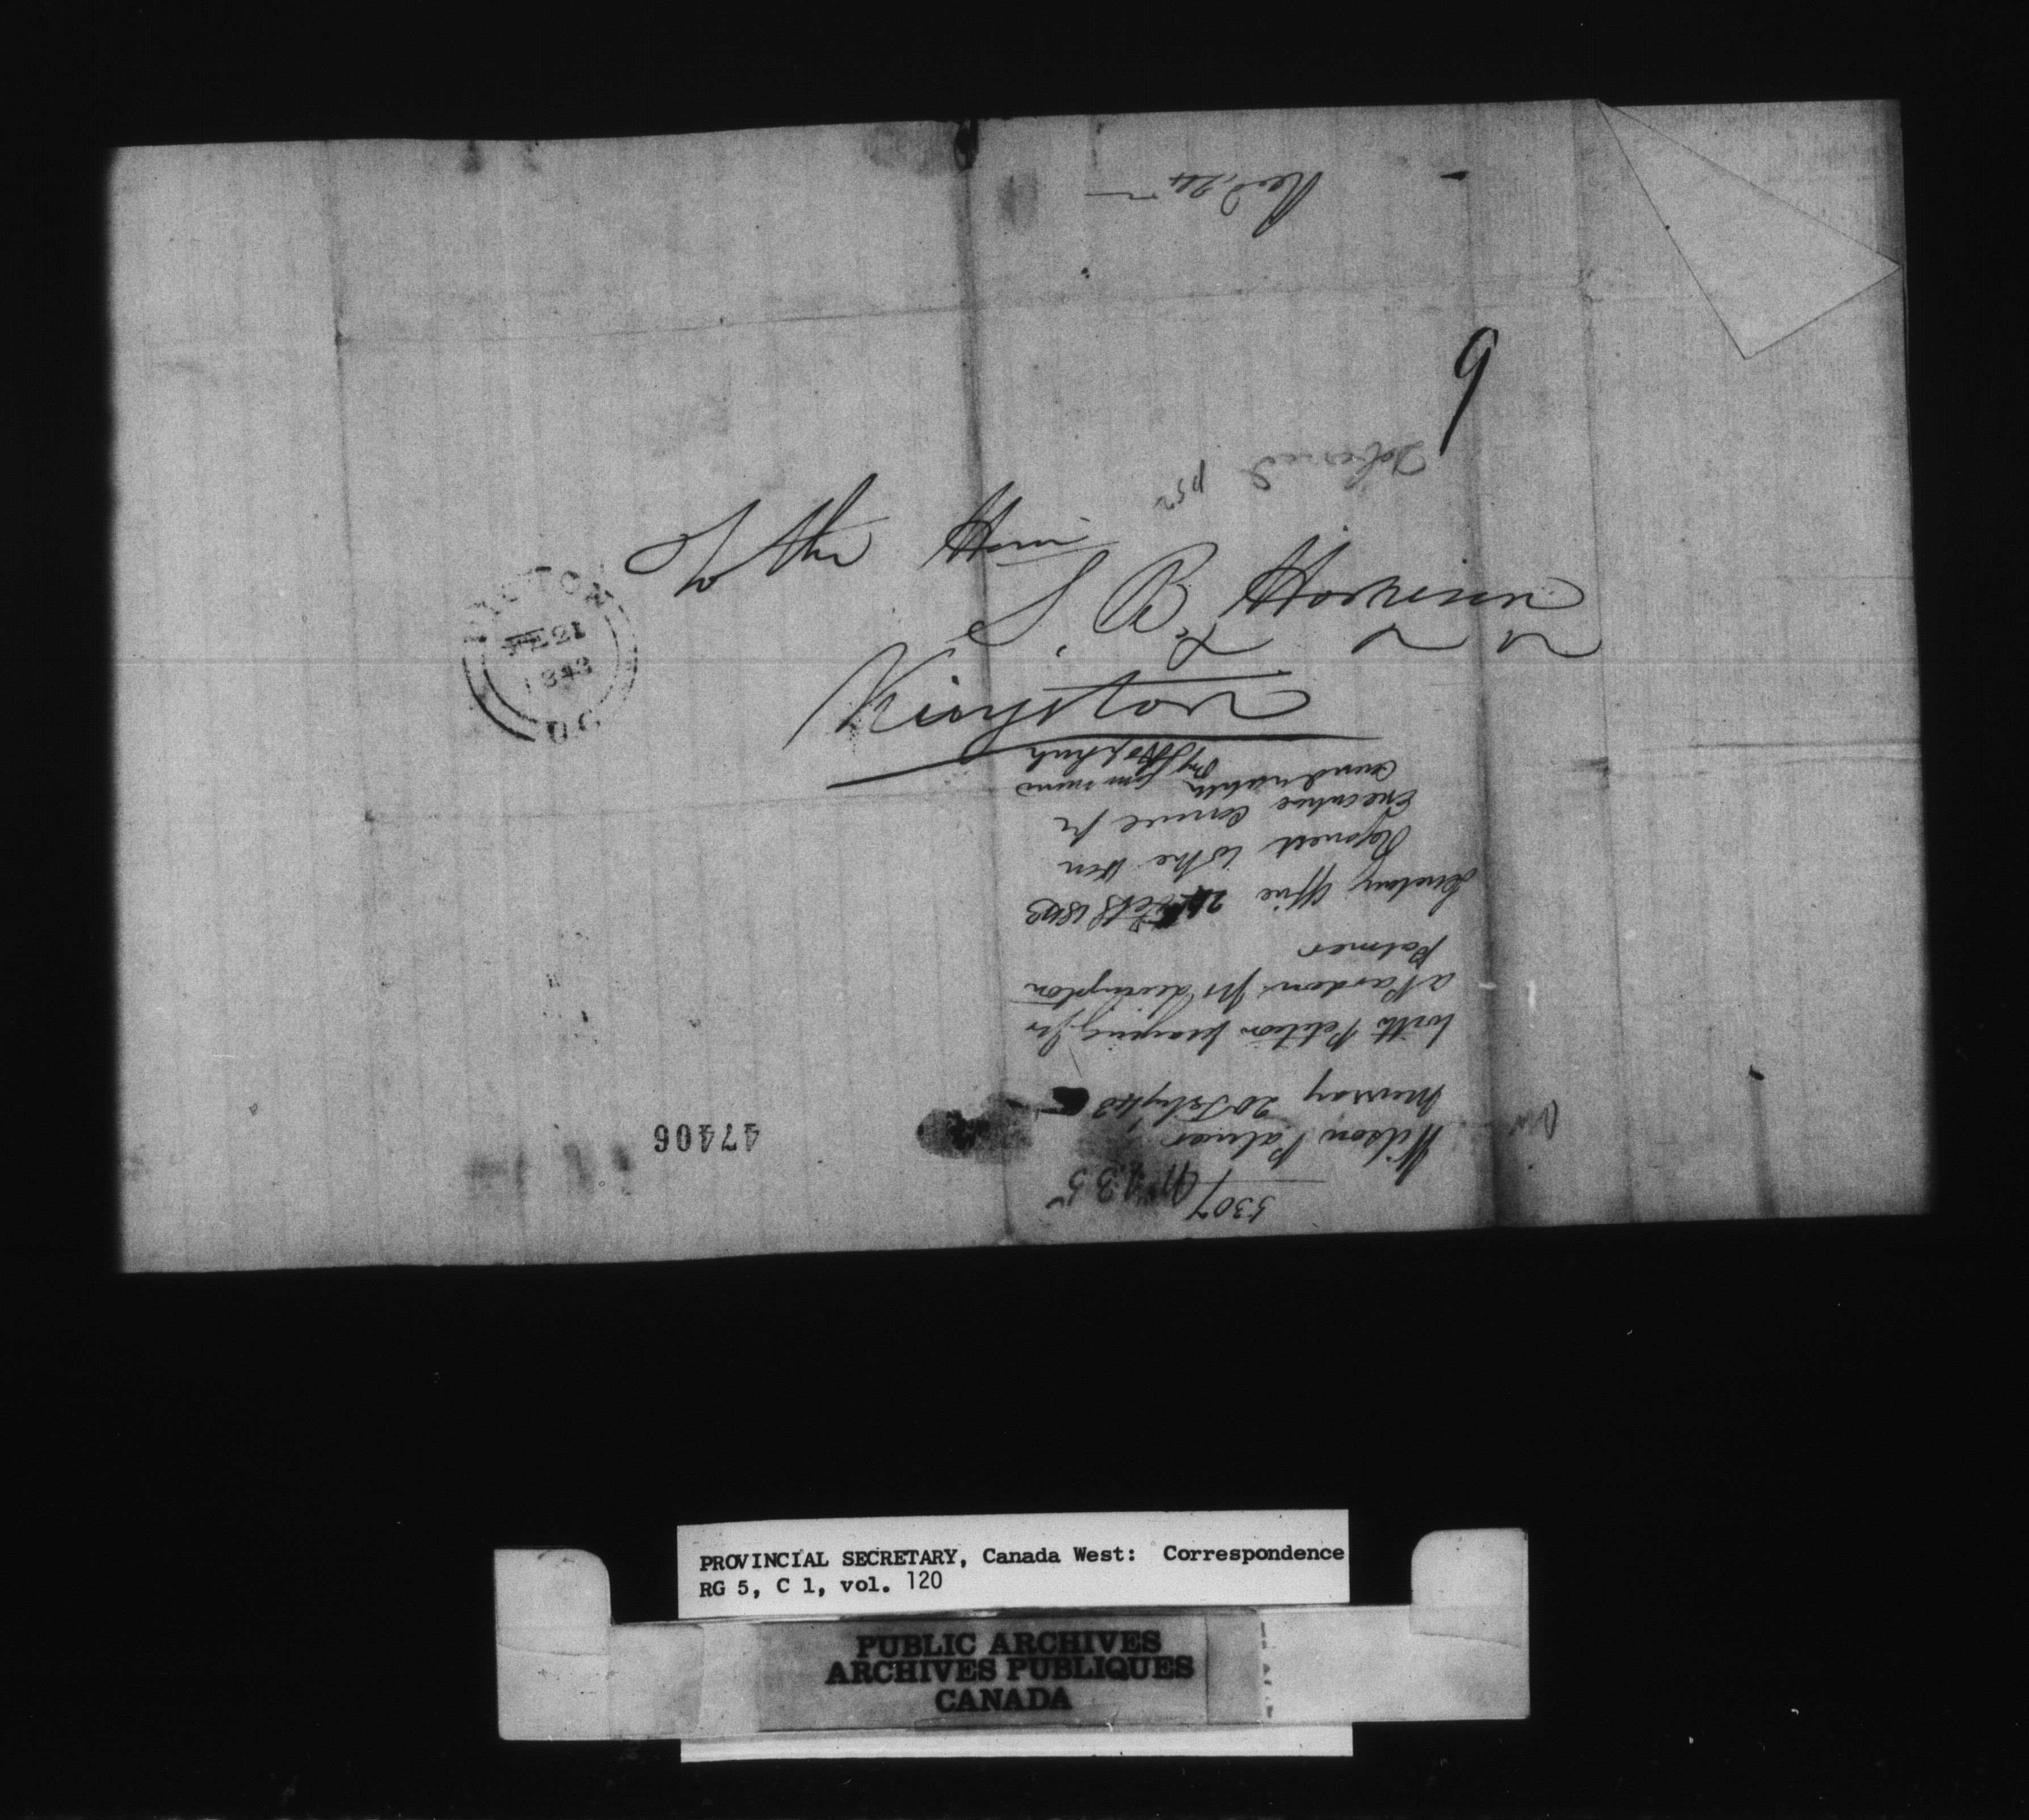 To the Hon
S. B. Harrison
&c
Kingston
PICTON
FE 21
1843
U.C
9
Recd 24
5307
No 435
Wilson Palmer
Murray 20 Feby 43
With Petition praying for
a Pardon for Lewington
Palmer
Secretary's Office 24 Feby 1843
Referred to the Hon
Executive Council for
consideration
By Command
47406
PROVINCIAL SECRETARY, Canada West: Correspondence
RG 5, C 1, vol. 120
PUBLIC ARCHIVES
ARCHIVES PUBLIQUES
CANADA